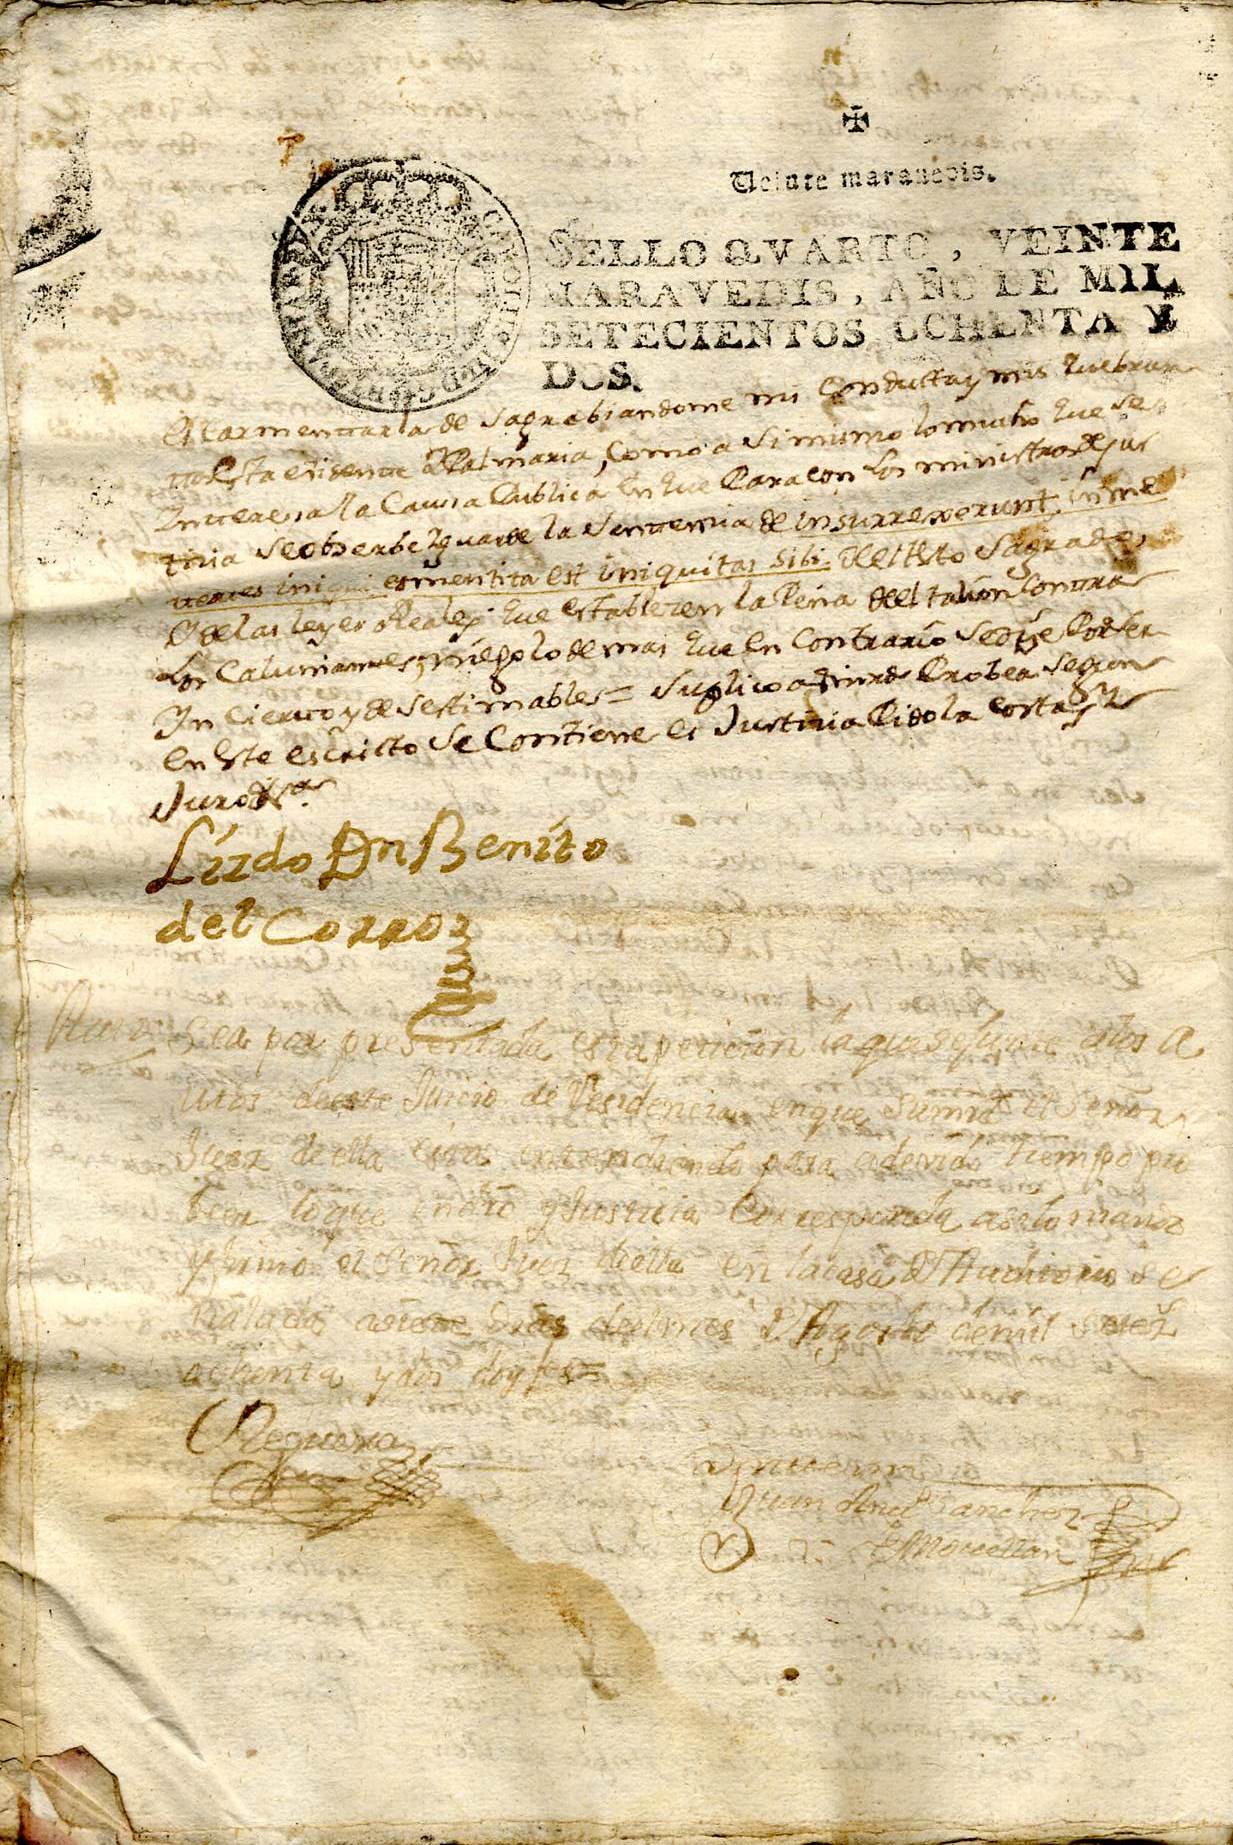 Veinte maravedis.
SELLO QVARTO, VEINTE
MARAVEDIS, AÑO DE MIL
SETECIENTOS OCHENTA Y
DOS.
Escarmentarla de Sagrabiandome mi Conducta y mis quebran
esta evidente o Palmaria, Como a Si mismo lo mucho que se
Interesa la Causa Publica en que Para con los ministros de Jus
ticia se obserbe y guarde la Sentencia de insurrexerunt in me
testes iniqui et mentita est iniquitas sibi. del testo Sagrado,
O de las leyes Reales que establezen la Pena del talion Contra
los Caluniantes; niego lo demas que en Contrario se dize Por ser
In Cierto y desestimables = Suplico a Vmrd Probea segun
en Este escrito se Contiene es Justicia Pido la costas y
Juro &ª
Lizdo Dn Benito
del Corro
Auto Sea por presentada esta peticion la que se junte a los A
utos de este Juicio de Residencia en que Su mrd el Señor
Juez de ella esta entendiendo para a devido tiempo pro
beer lo que en dro y Justicia Corresponda asi lo mando
y firmo el Señor Juez de ella en la casa de Audiencia Se
ñalada a siete Dias del mes de Agosto de mil setez
ochenta y dos doy fee =
Requena
Juan Sanchez